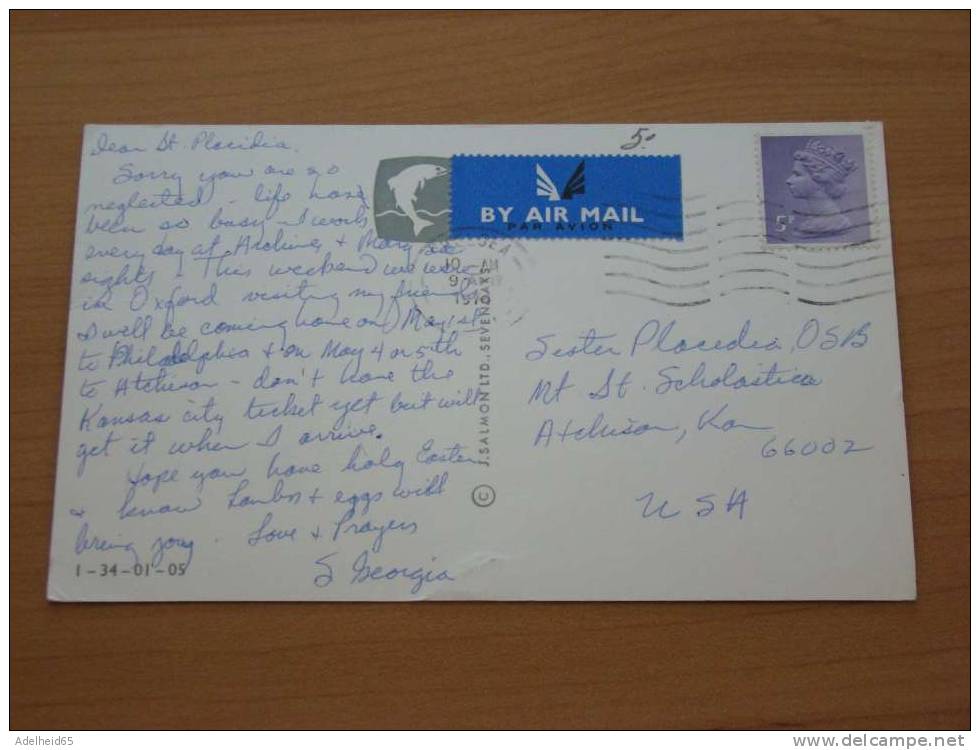 Dear St. Placidia.
Sorry you are so
neglected - life has
been so busy - I work
every day at Archives + Mary
sights! This weekend we were
in Oxford visiting my friends
I will be coming home on May 1st
to Philadelphia + on May 4 or 5th
to Atchison - don't have the
Kansas city ticket yet but will
get it when I arrive.
Hope you have holy Easter
+ know Lambs + eggs will
bring joy. Love + Prayers
S Georgia
1-34-01-05
J. SALMON LTD., SEVENOAKS
©
5.
BY AIR MAIL
PAR AVION
10 AM
9
197
5P
Sister Placidia, OSB
Mt St. Scholastica
Atchison, Kan
66002
USA
Adelheid65
www.delcampe.net